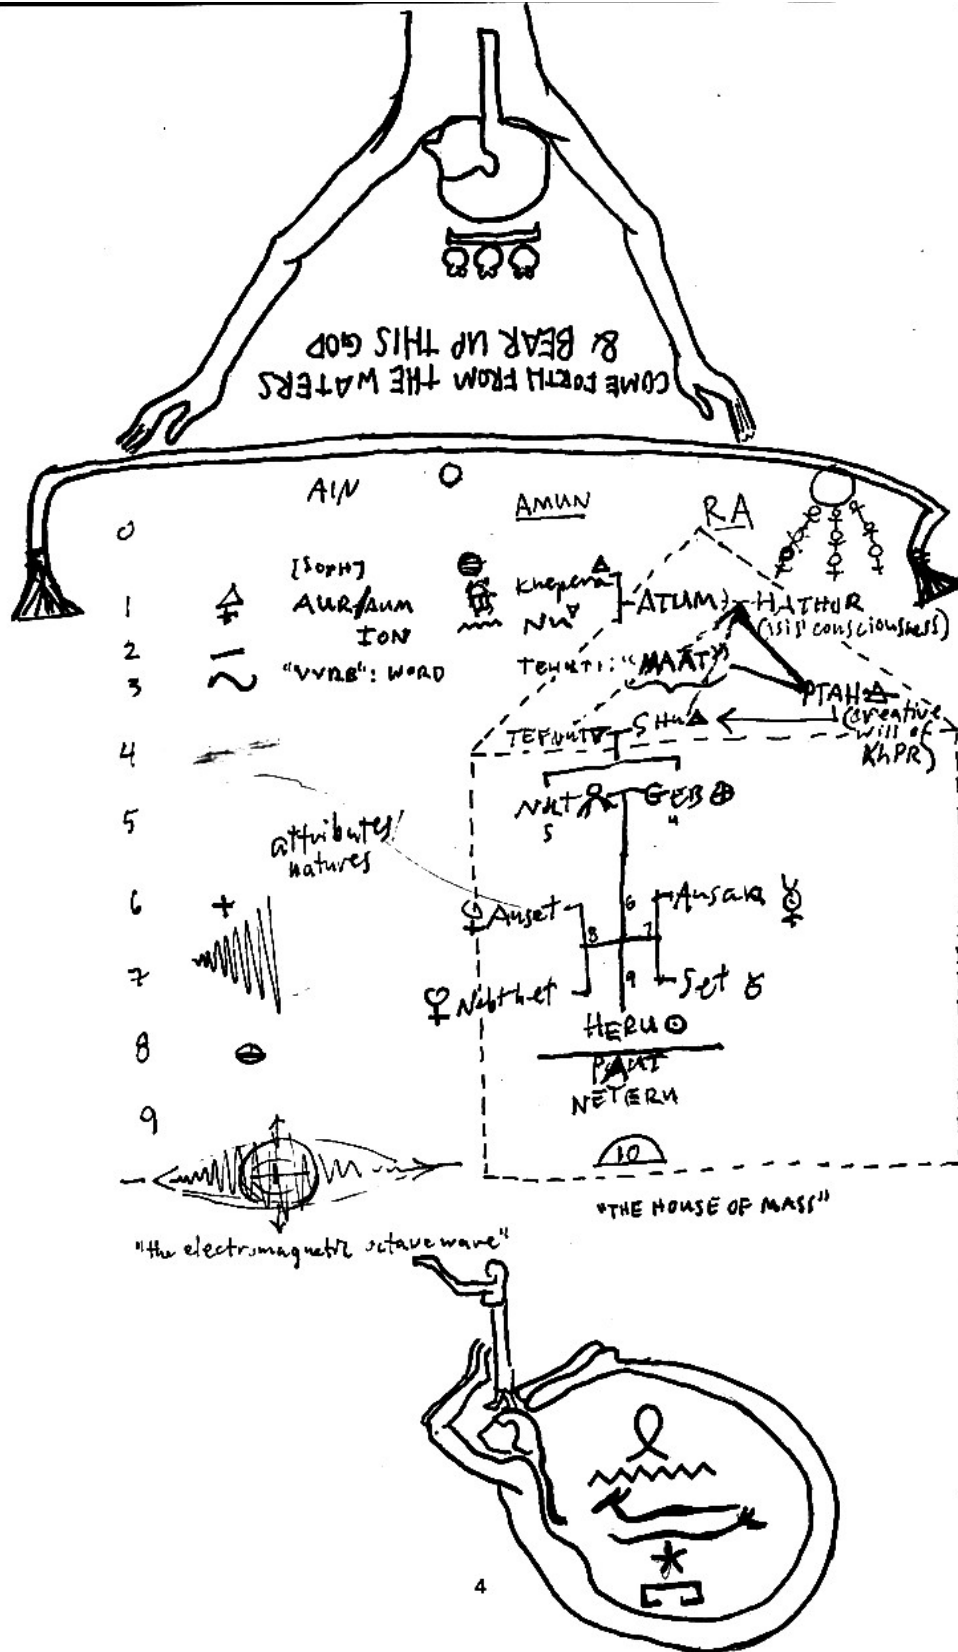 COME FORTH FROM THE WATERS
& BEAR UP THIS GOD
AIN
0
AMUN
RA
[SOPH]
Khepera
1
AUR/AUM
ION
Nu
ATUM
HATHUR
(isis consciousness)
2
3
"VVRB": WORD
TEHUTI: "MAAT"
PTAH
(creative
will of
KhPR)
4
TEFNUT
SHU
NUT
GEB
5
4
5
attributes/
natures
6
+
Auset
6
Ausar
8
7
7
Nebthet
9
Set
HERU
8
PAUT
NETERU
9
10
"THE HOUSE OF MASS"
"the electromagnetic octave wave"
4